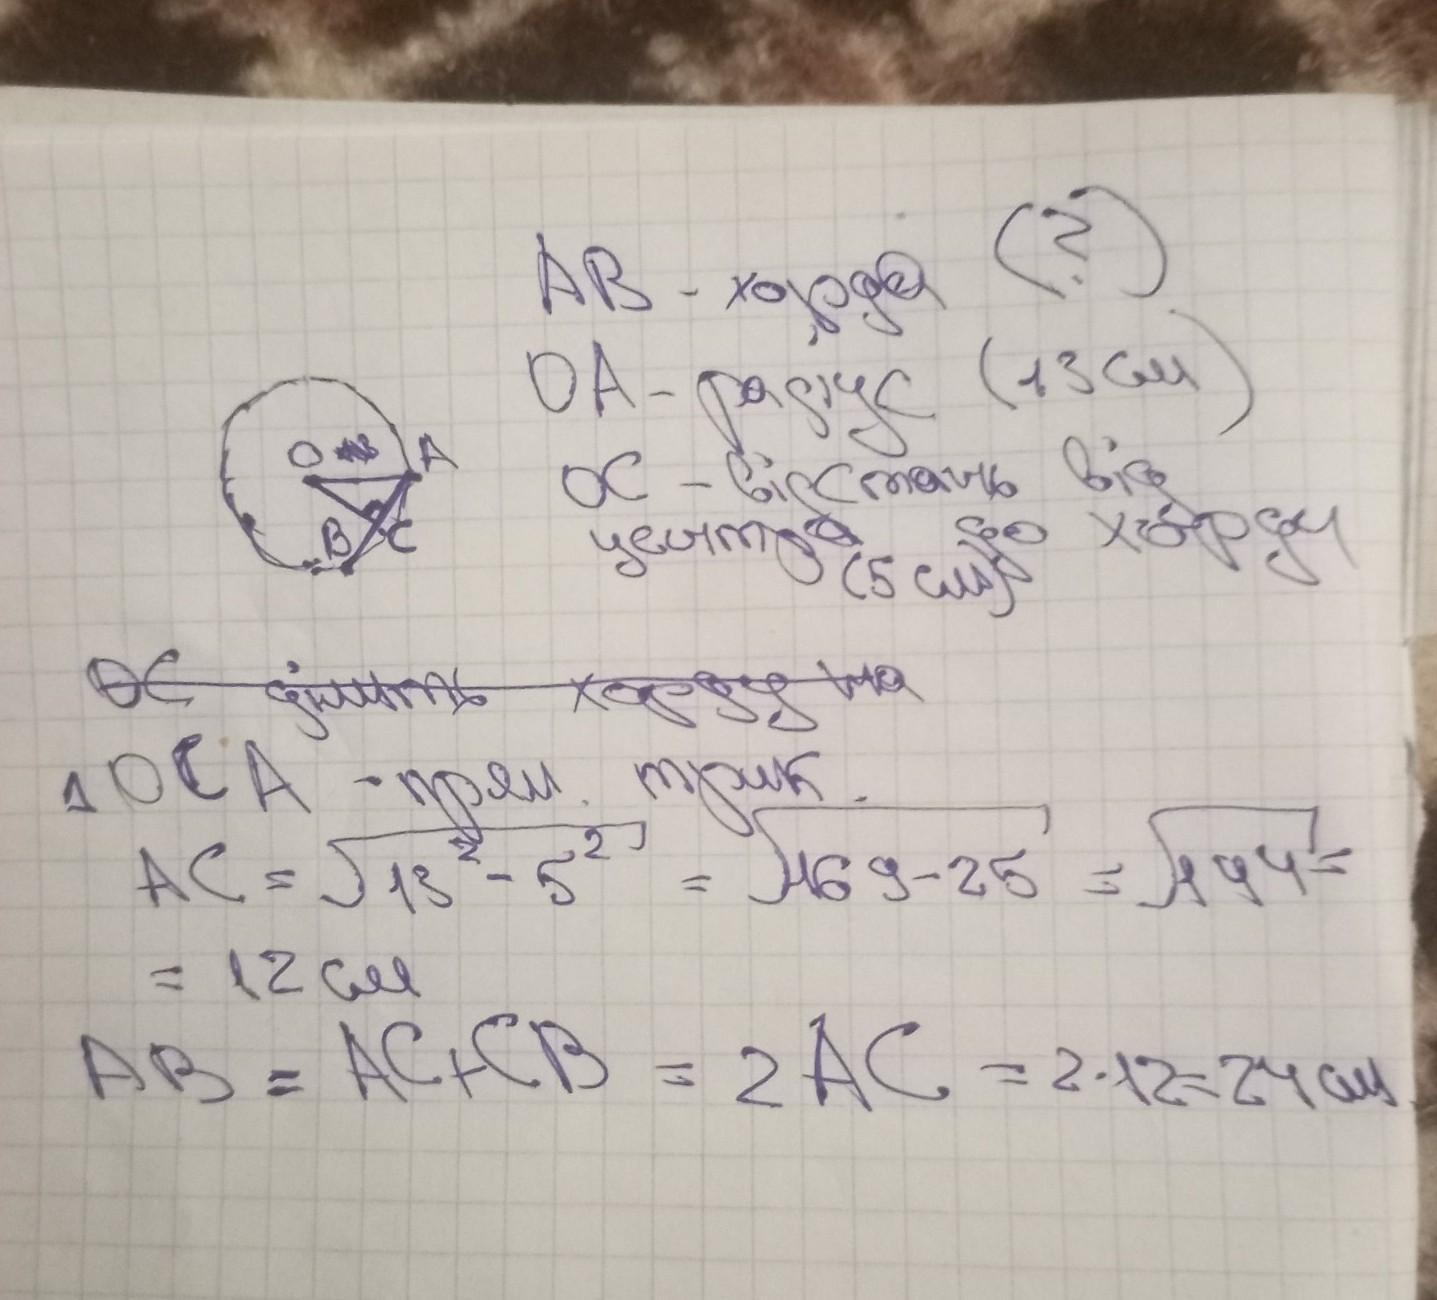 AB - хорда (?)
OA - радіус (13 см)
OC - відстань від
центра до хорди
(5 см)
O
A
B
C
OC ділить хорду на
1 OCA - прям. трик.
AC = √13² - 5² = √169-25 = √144 =
= 12 см
AB = AC+CB = 2AC = 2·12=24 см